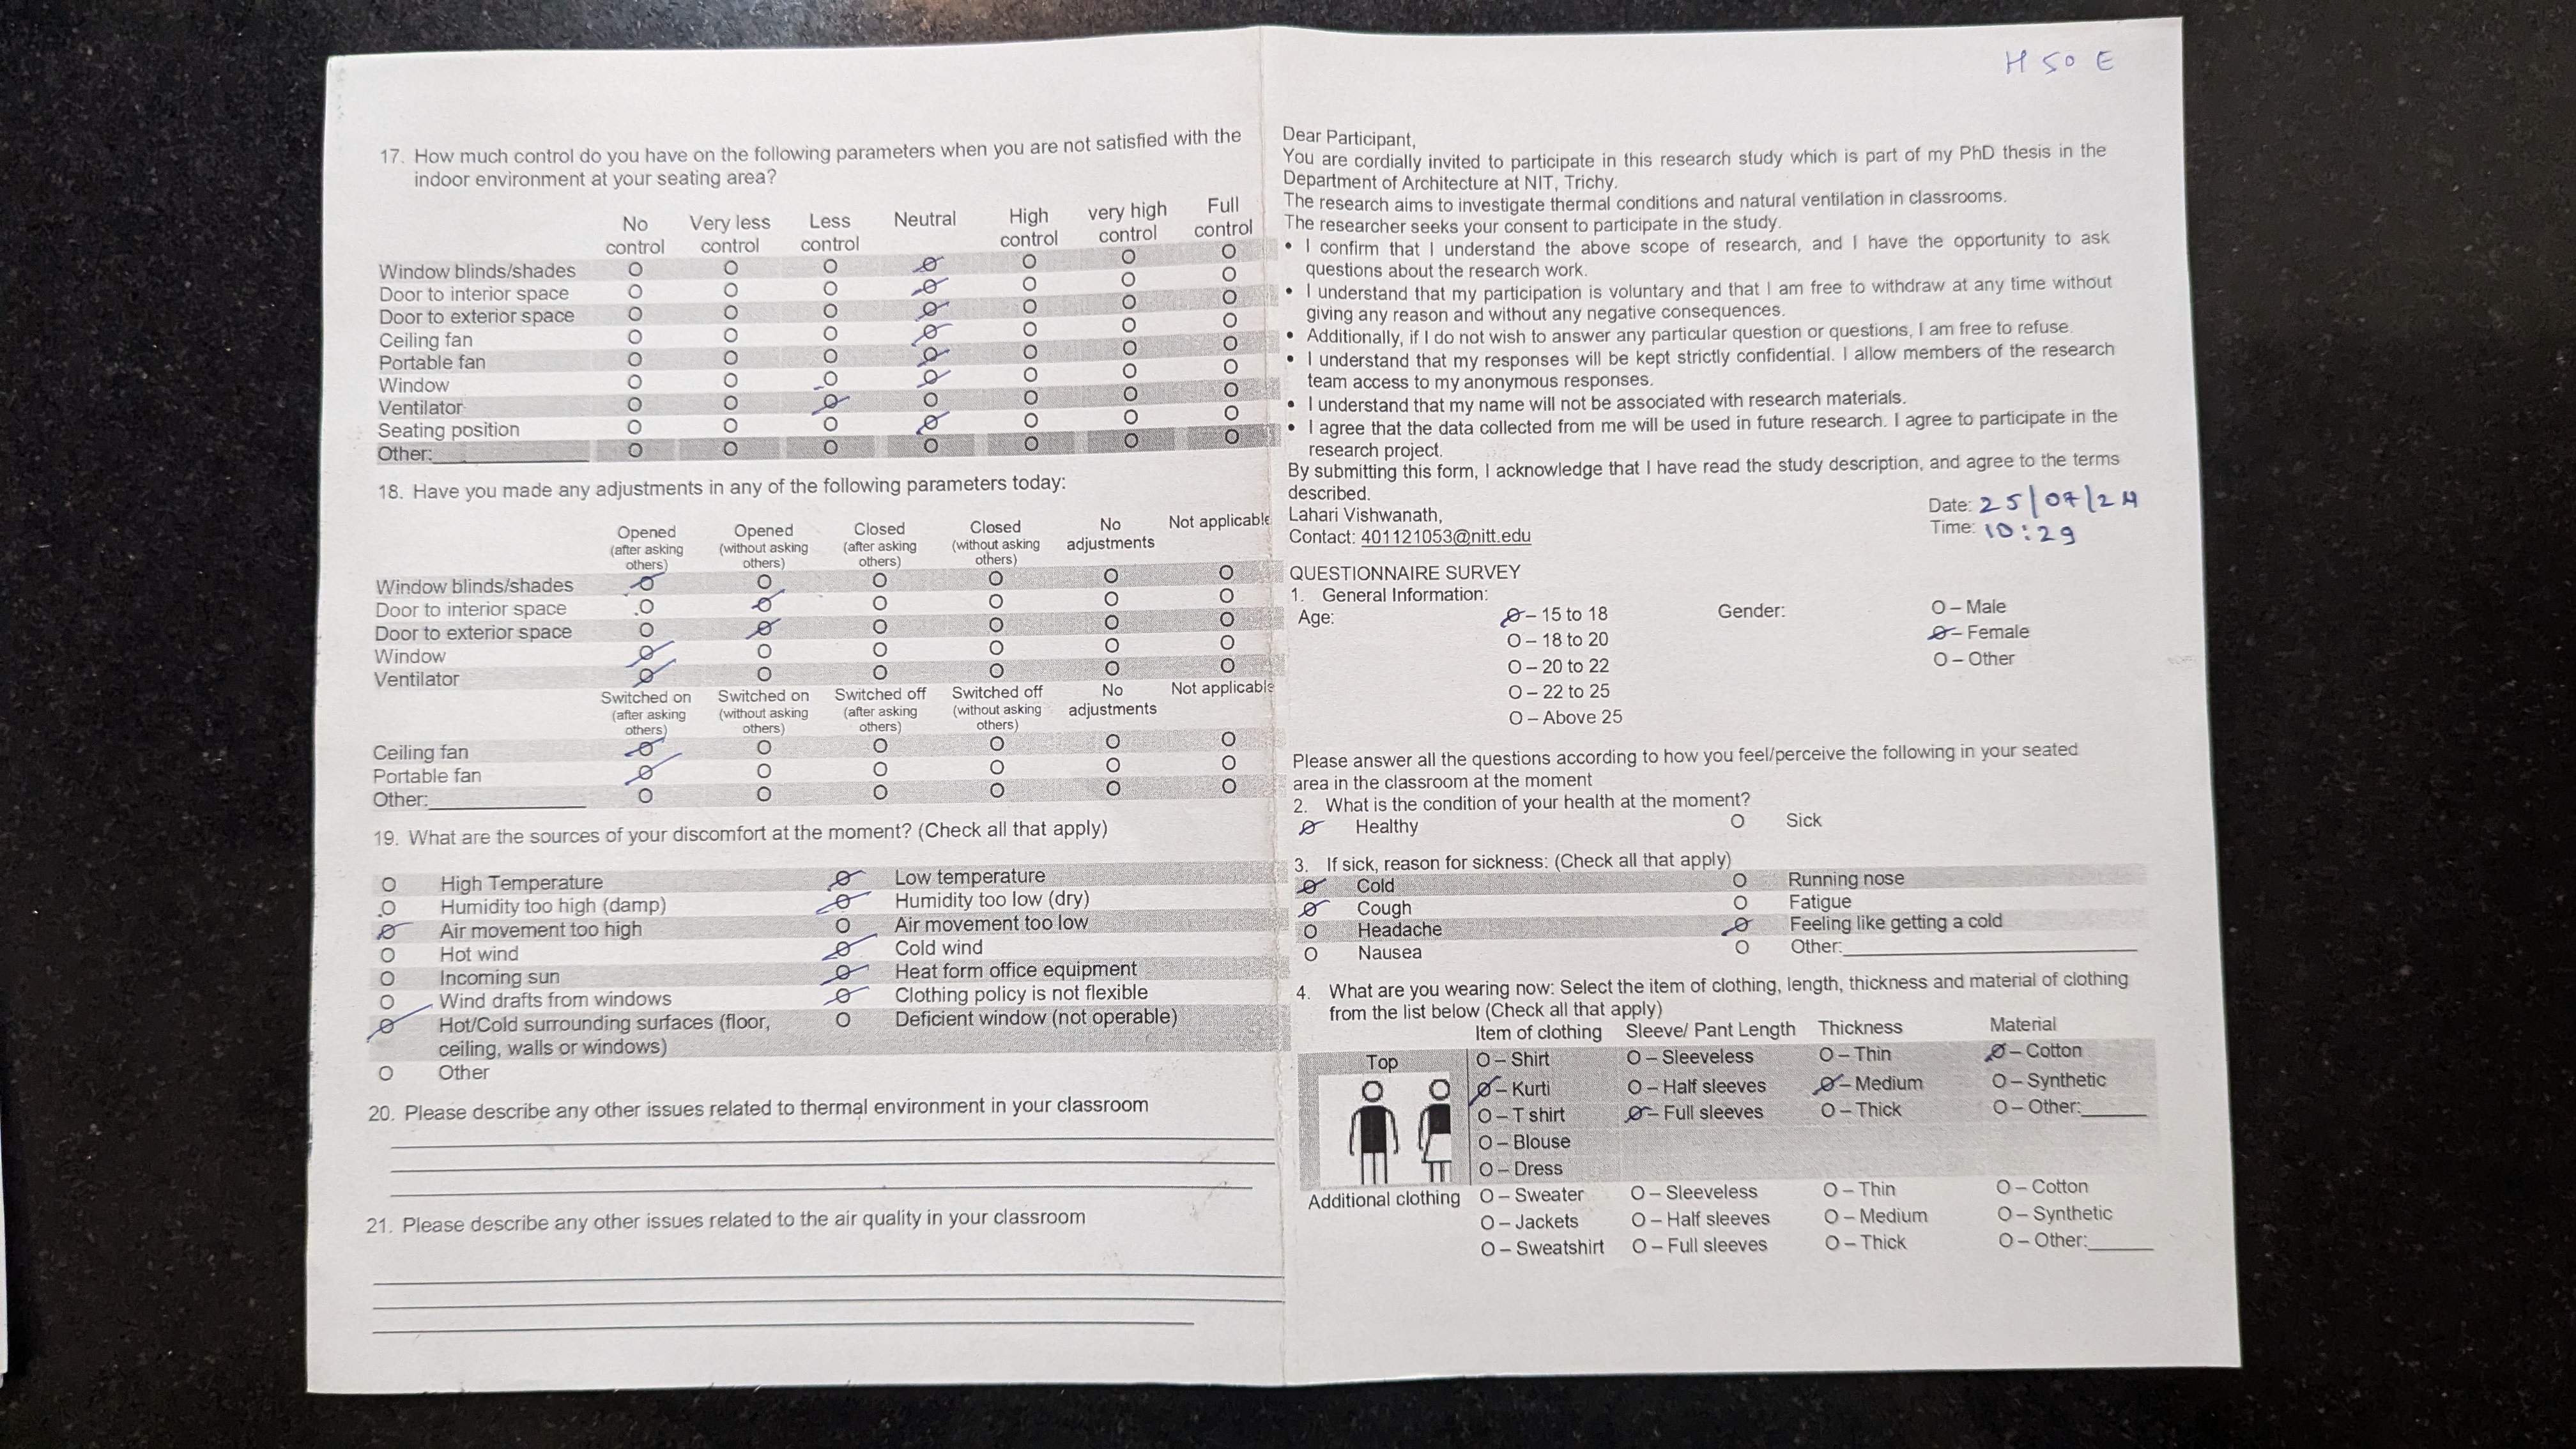 17. How much control do you have on the following parameters when you are not satisfied with the
indoor environment at your seating area?
No control Very less control Less control Neutral High control very high control Full control
Window blinds/shades O O O O O O O
Door to interior space O O O O O O O
Door to exterior space O O O O O O O
Ceiling fan O O O O O O O
Portable fan O O O O O O O
Window O O O O O O O
Ventilator O O O O O O O
Seating position O O O O O O O
Other: O O O O O O O
18. Have you made any adjustments in any of the following parameters today:
Opened (after asking others) Opened (without asking others) Closed (after asking others) Closed (without asking others) No adjustments Not applicable
Window blinds/shades O O O O O O
Door to interior space O O O O O O
Door to exterior space O O O O O O
Window O O O O O O
Ventilator O O O O O O
Switched on (after asking others) Switched on (without asking others) Switched off (after asking others) Switched off (without asking others) No adjustments Not applicable
Ceiling fan O O O O O O
Portable fan O O O O O O
Other: O O O O O O
19. What are the sources of your discomfort at the moment? (Check all that apply)
O High Temperature O Low temperature
O Humidity too high (damp) O Humidity too low (dry)
O Air movement too high O Air movement too low
O Hot wind O Cold wind
O Incoming sun O Heat form office equipment
O Wind drafts from windows O Clothing policy is not flexible
O Hot/Cold surrounding surfaces (floor, O Deficient window (not operable)
ceiling, walls or windows)
O Other
20. Please describe any other issues related to thermal environment in your classroom
21. Please describe any other issues related to the air quality in your classroom
H 50 E
Dear Participant,
You are cordially invited to participate in this research study which is part of my PhD thesis in the
Department of Architecture at NIT, Trichy.
The research aims to investigate thermal conditions and natural ventilation in classrooms.
The researcher seeks your consent to participate in the study.
• I confirm that I understand the above scope of research, and I have the opportunity to ask
questions about the research work.
• I understand that my participation is voluntary and that I am free to withdraw at any time without
giving any reason and without any negative consequences.
• Additionally, if I do not wish to answer any particular question or questions, I am free to refuse.
• I understand that my responses will be kept strictly confidential. I allow members of the research
team access to my anonymous responses.
• I understand that my name will not be associated with research materials.
• I agree that the data collected from me will be used in future research. I agree to participate in the
research project.
By submitting this form, I acknowledge that I have read the study description, and agree to the terms
described.
Date: 25/07/24
Lahari Vishwanath,
Time: 10:29
Contact: 401121053@nitt.edu
QUESTIONNAIRE SURVEY
1. General Information:
Age: O – 15 to 18 Gender: O – Male
O – 18 to 20 O – Female
O – 20 to 22 O – Other
O – 22 to 25
O – Above 25
Please answer all the questions according to how you feel/perceive the following in your seated
area in the classroom at the moment
2. What is the condition of your health at the moment?
O Healthy O Sick
3. If sick, reason for sickness: (Check all that apply)
O Cold O Running nose
O Cough O Fatigue
O Headache O Feeling like getting a cold
O Nausea O Other:
4. What are you wearing now: Select the item of clothing, length, thickness and material of clothing
from the list below (Check all that apply)
Item of clothing Sleeve/ Pant Length Thickness Material
Top O – Shirt O – Sleeveless O – Thin O – Cotton
O – Kurti O – Half sleeves O – Medium O – Synthetic
O – T shirt O – Full sleeves O – Thick O – Other:
O – Blouse
O – Dress
Additional clothing O – Sweater O – Sleeveless O – Thin O – Cotton
O – Jackets O – Half sleeves O – Medium O – Synthetic
O – Sweatshirt O – Full sleeves O – Thick O – Other: